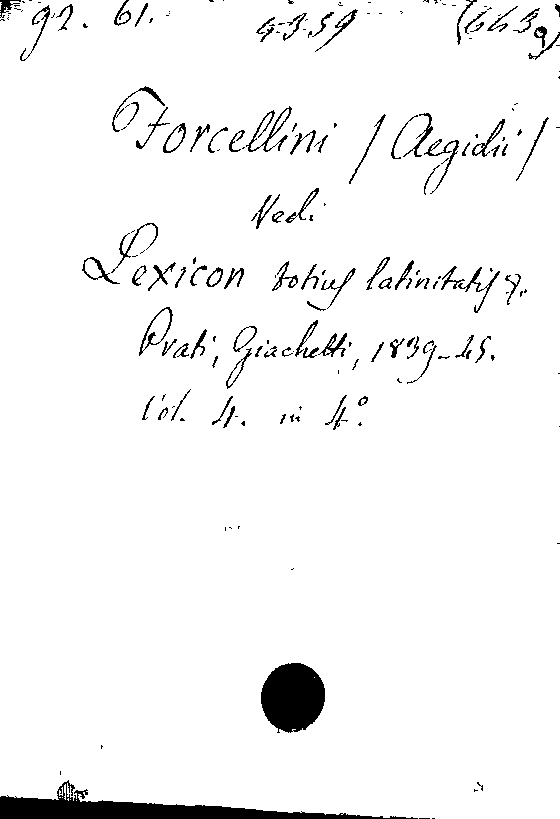 92. 61. 4-3-59 (6439)
Forcellini / Aegidii /
Vedi
Lexicon totius latinitatis &.
Prati, Giachetti, 1839-45.
Vol. 4. in 4°.